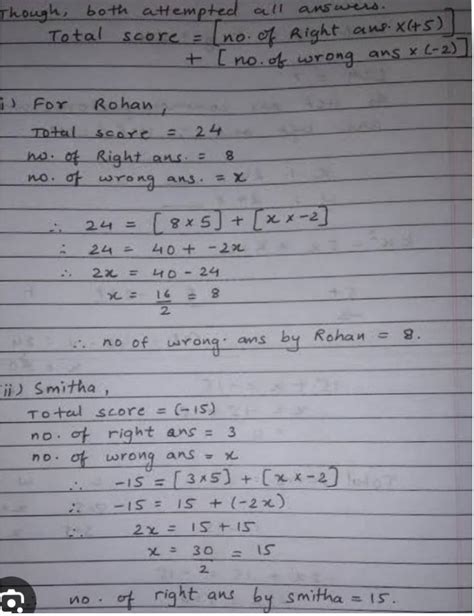 Though, both attempted all answers.
Total score = [no. of Right ans. x(+5)]
+ [no. of wrong ans x (-2)]
i) For Rohan,
Total score = 24
no. of Right ans. = 8
no. of wrong ans. = x
∴ 24 = [8 x 5] + [x x -2]
∴ 24 = 40 + -2x
∴ 2x = 40 - 24
x = 16/2 = 8
∴ no of wrong. ans by Rohan = 8.
ii) Smitha,
Total score = (-15)
no. of right ans = 3
no. of wrong ans = x
∴ -15 = [3x5] + [x x -2]
∴ -15 = 15 + (-2x)
∴ 2x = 15 + 15
x = 30/2 = 15
no. of right ans by smitha = 15.